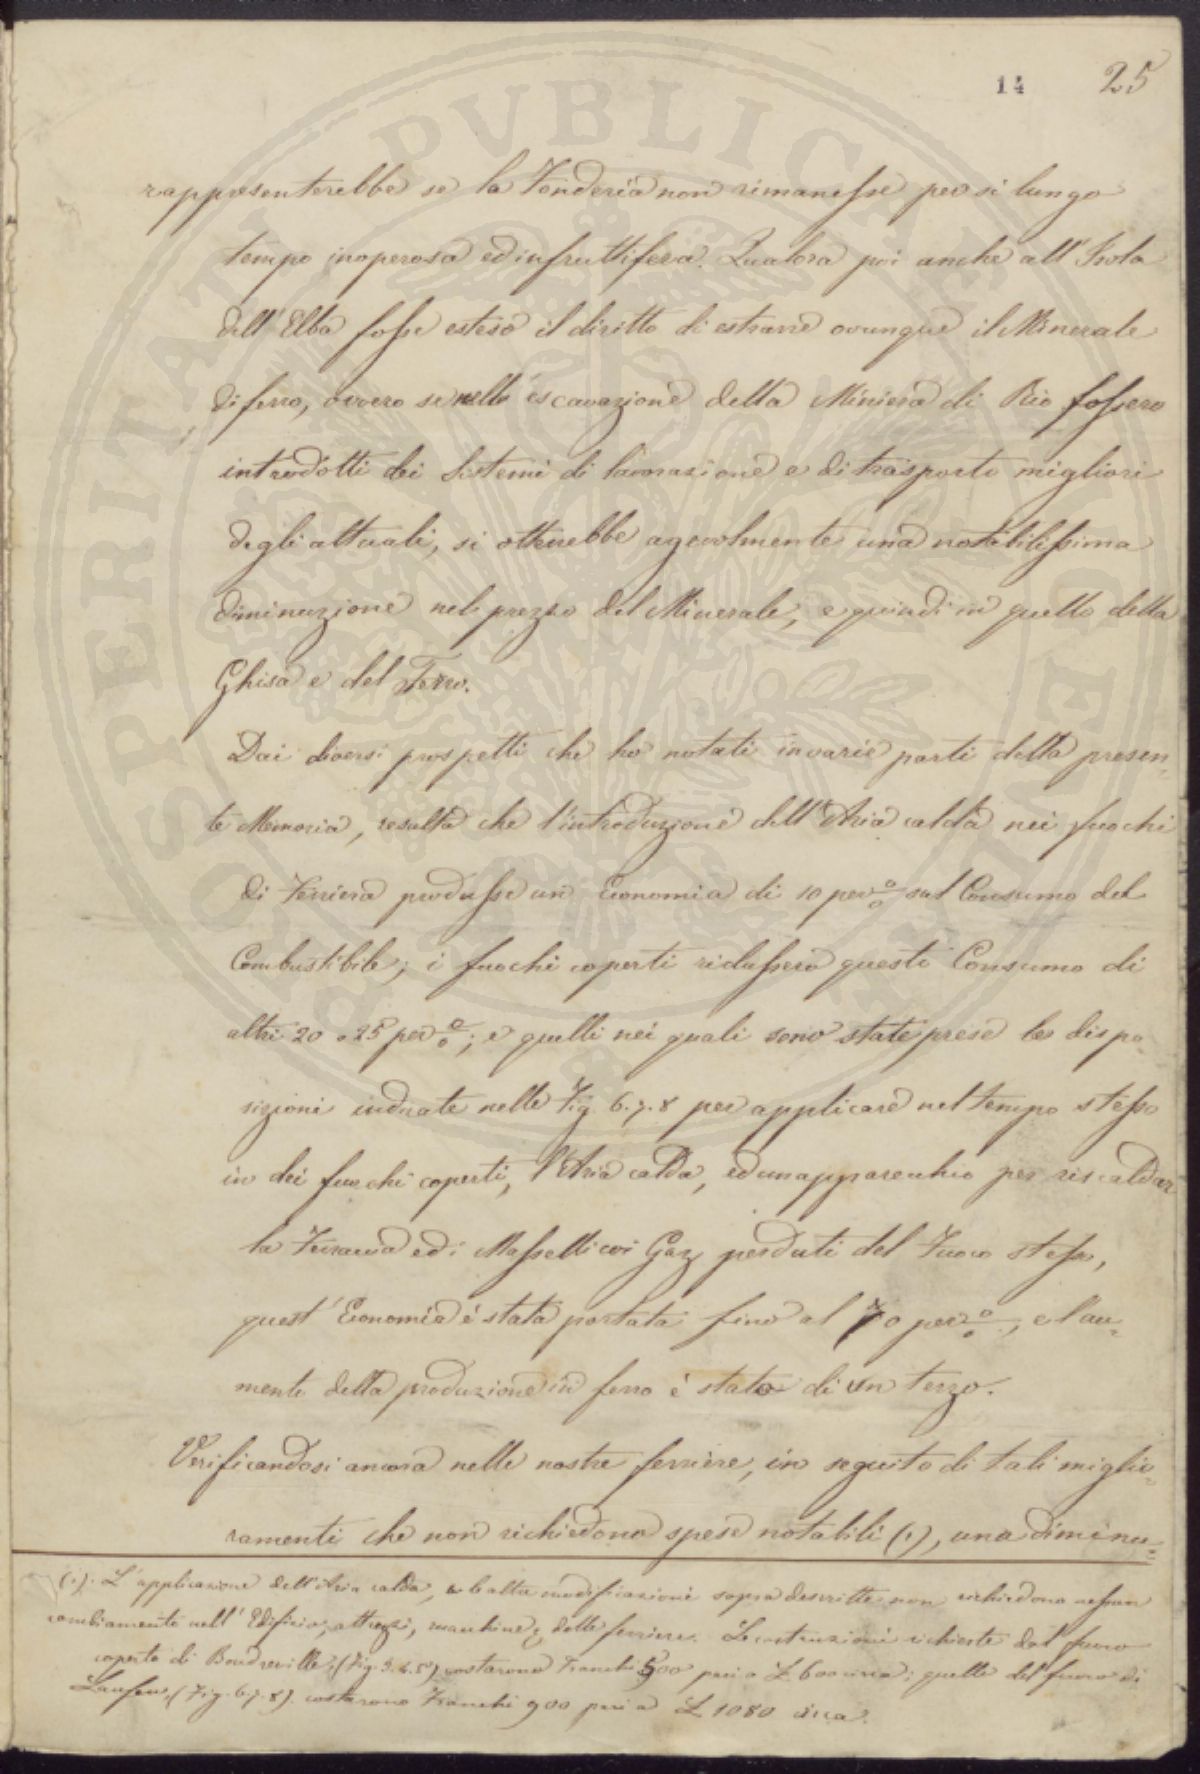 14 25
rappresenterebbe se la Fonderia non rimanesse per sì lungo
tempo inoperosa ed infruttifera. Qualora poi anche all'Isola
dell'Elba fosse esteso il diritto di estrarre ovunque il Minerale
di ferro, ovvero se nella escavazione della Miniera di Rio fossero
introdotti dei Sistemi di lavorazione e di trasporto migliori
degli attuali, si otterrebbe agevolmente una notabilissima
diminuzione nel prezzo del Minerale, e quindi in quello della
Ghisa e del Ferro.
Dai diversi prospetti che ho notati in varie parti della presen=
te Memoria, resulta che l'introduzione dell'Aria calda nei fuochi
di Ferriera produsse un Economia di 10 per % sul Consumo del
Combustibile; i fuochi coperti ridussero questo Consumo di
altri 20 o 25 per %; e quelli nei quali sono state prese le dispo=
sizioni indicate nelle Fig. 6. 7. 8 per applicare nel tempo stesso
in dei fuochi coperti, l'Aria calda, ed un apparecchio per riscaldar
la Ferraccia ed i Masselli coi Gaz perduti del Fuoco stesso,
quest'Economia è stata portata fino al 70 per %, e l'au=
mento della produzione in ferro è stato di un terzo.
Verificandosi ancora nelle nostre ferriere, in seguito di tali miglio=
ramenti che non richiedono spese notabili (1), una diminu=
(1). L'applicazione dell'Aria calda, e le altre modificazioni sopra descritte non richiedono nessun
cambiamento nell'Edifizio, attrezzi, macchine &. delle ferriere. Le costruzioni richieste dal fuoco
coperto di Boudreville, (Fig. 3. 4. 5) costarono Franchi 500 pari a L 600 circa; quelle del fuoco di
Laufen, (Fig. 6. 7. 8) costarono Franchi 900 pari a L 1080 circa.
PROSPERITATI PVBLICAE AVGENDAE